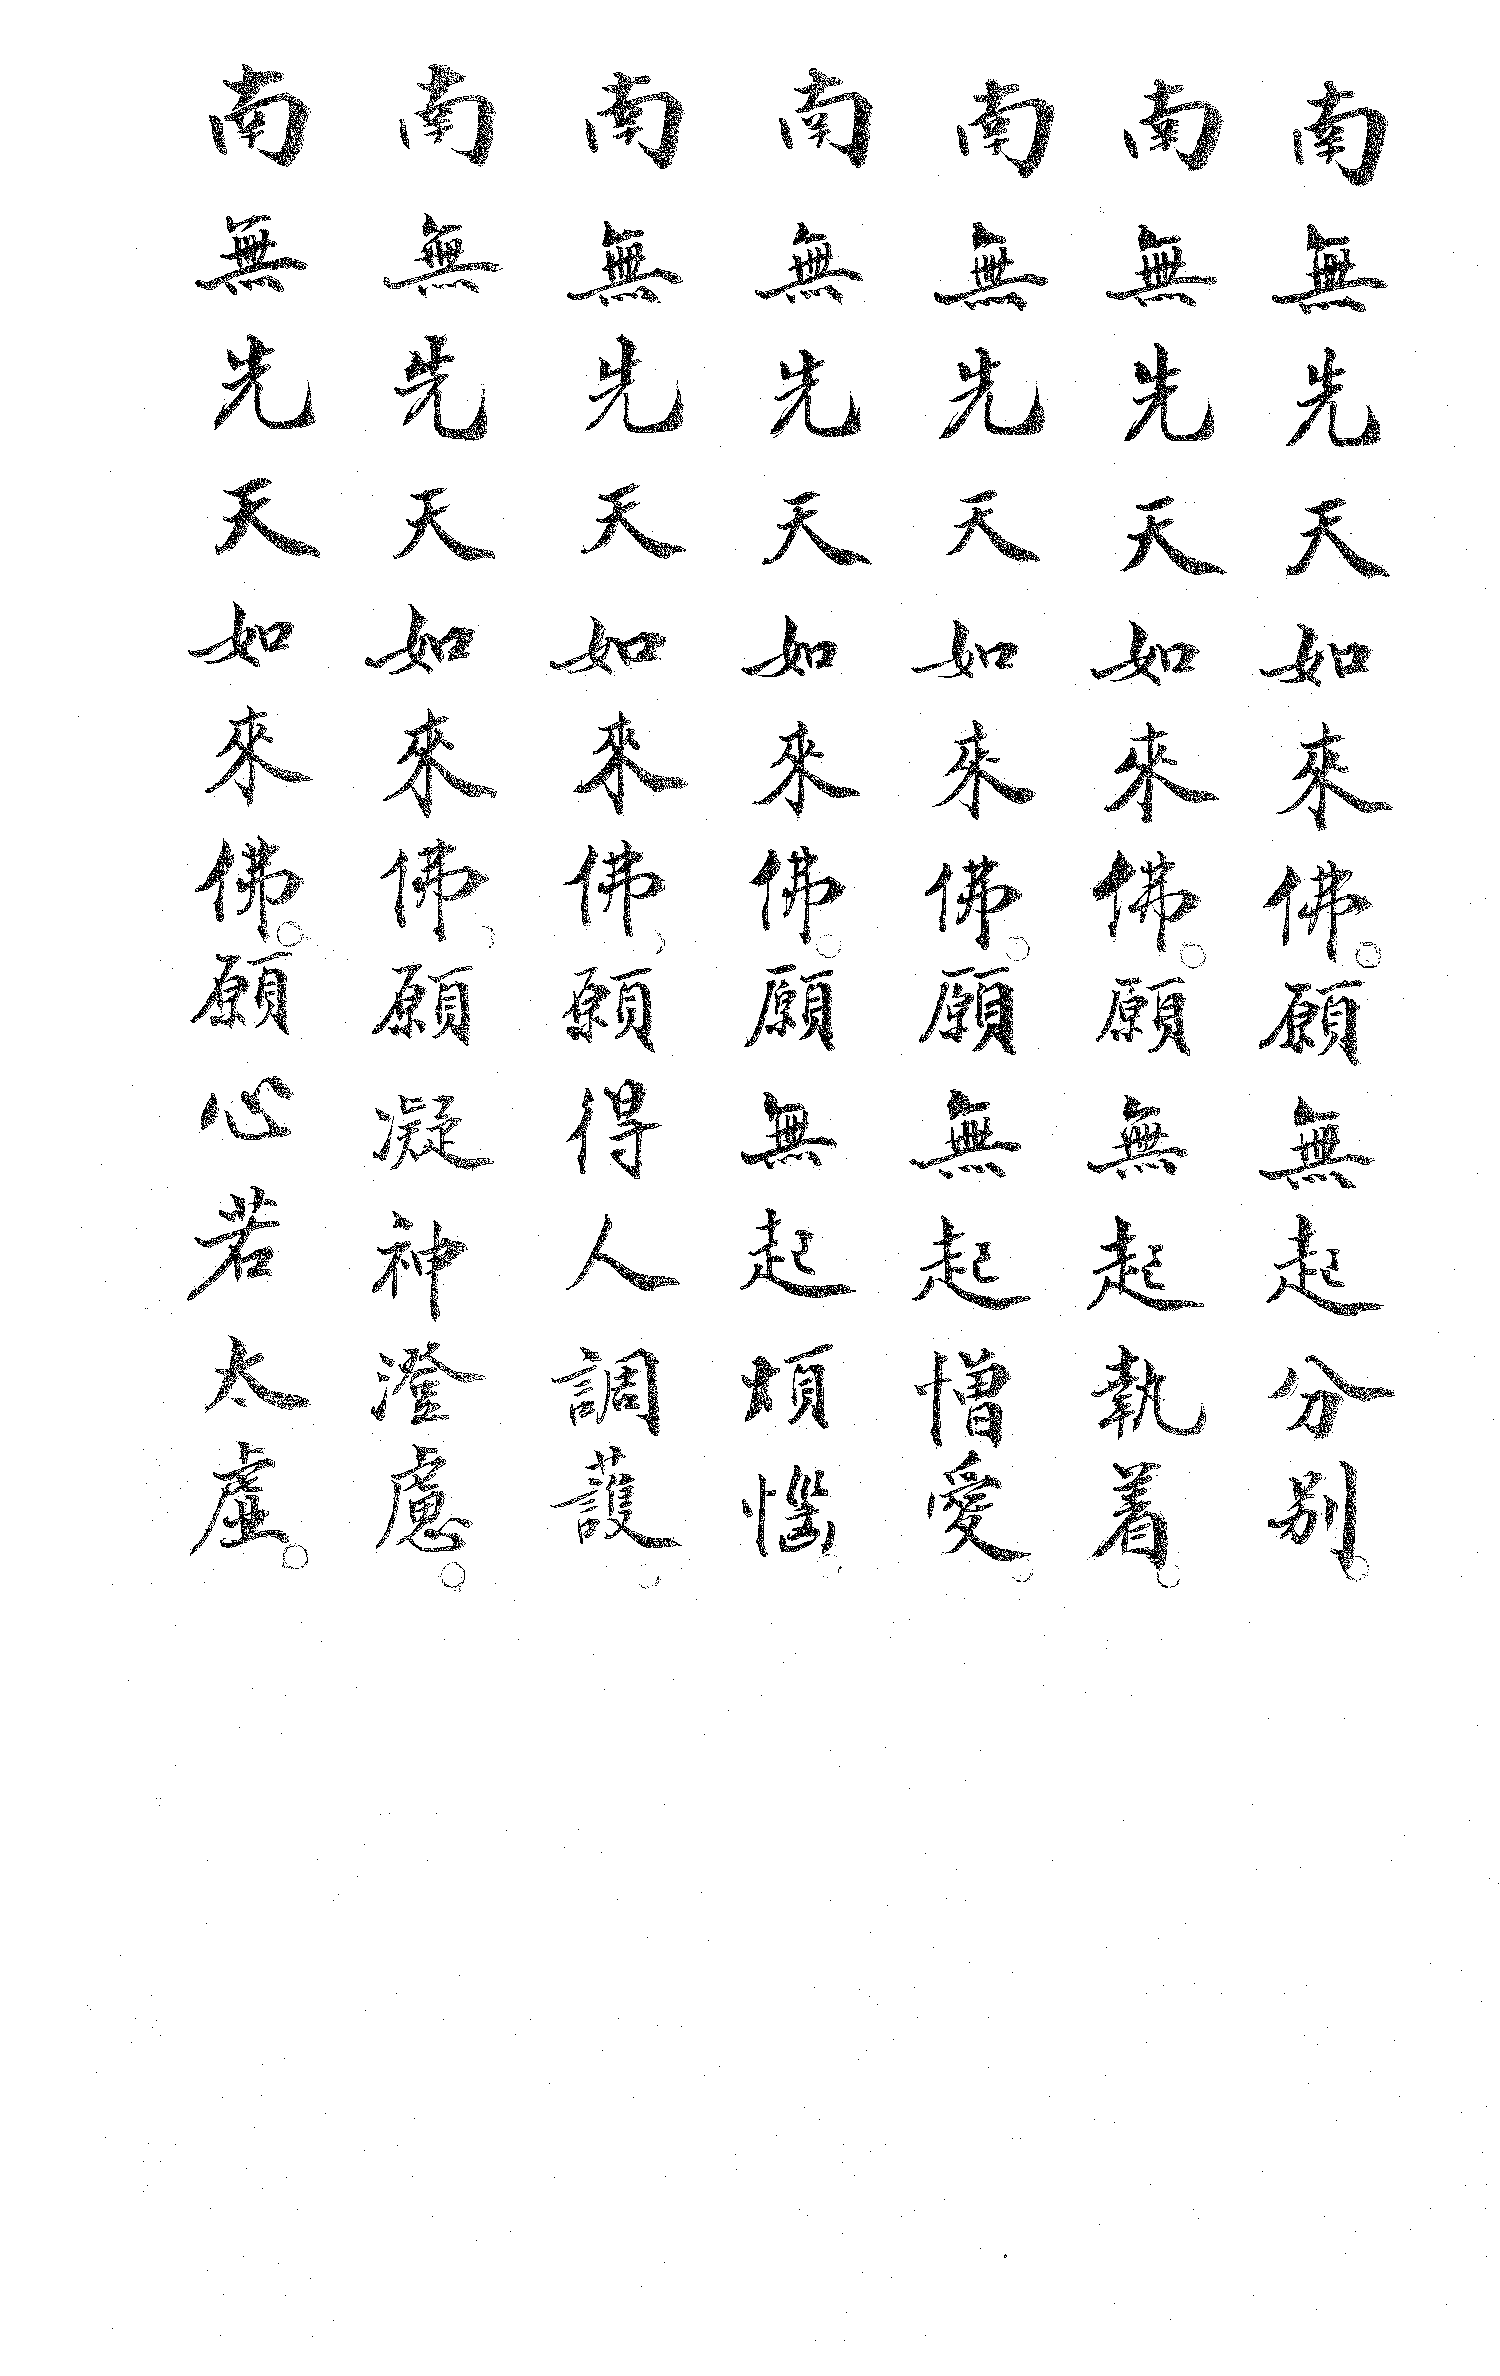 南無先天如來佛。願無起分別。
南無先天如來佛。願無起執着。
南無先天如來佛。願無起憎愛。
南無先天如來佛。願無起煩惱。
南無先天如來佛。願得人調護。
南無先天如來佛。願凝神澄慮。
南無先天如來佛。願心若太虛。